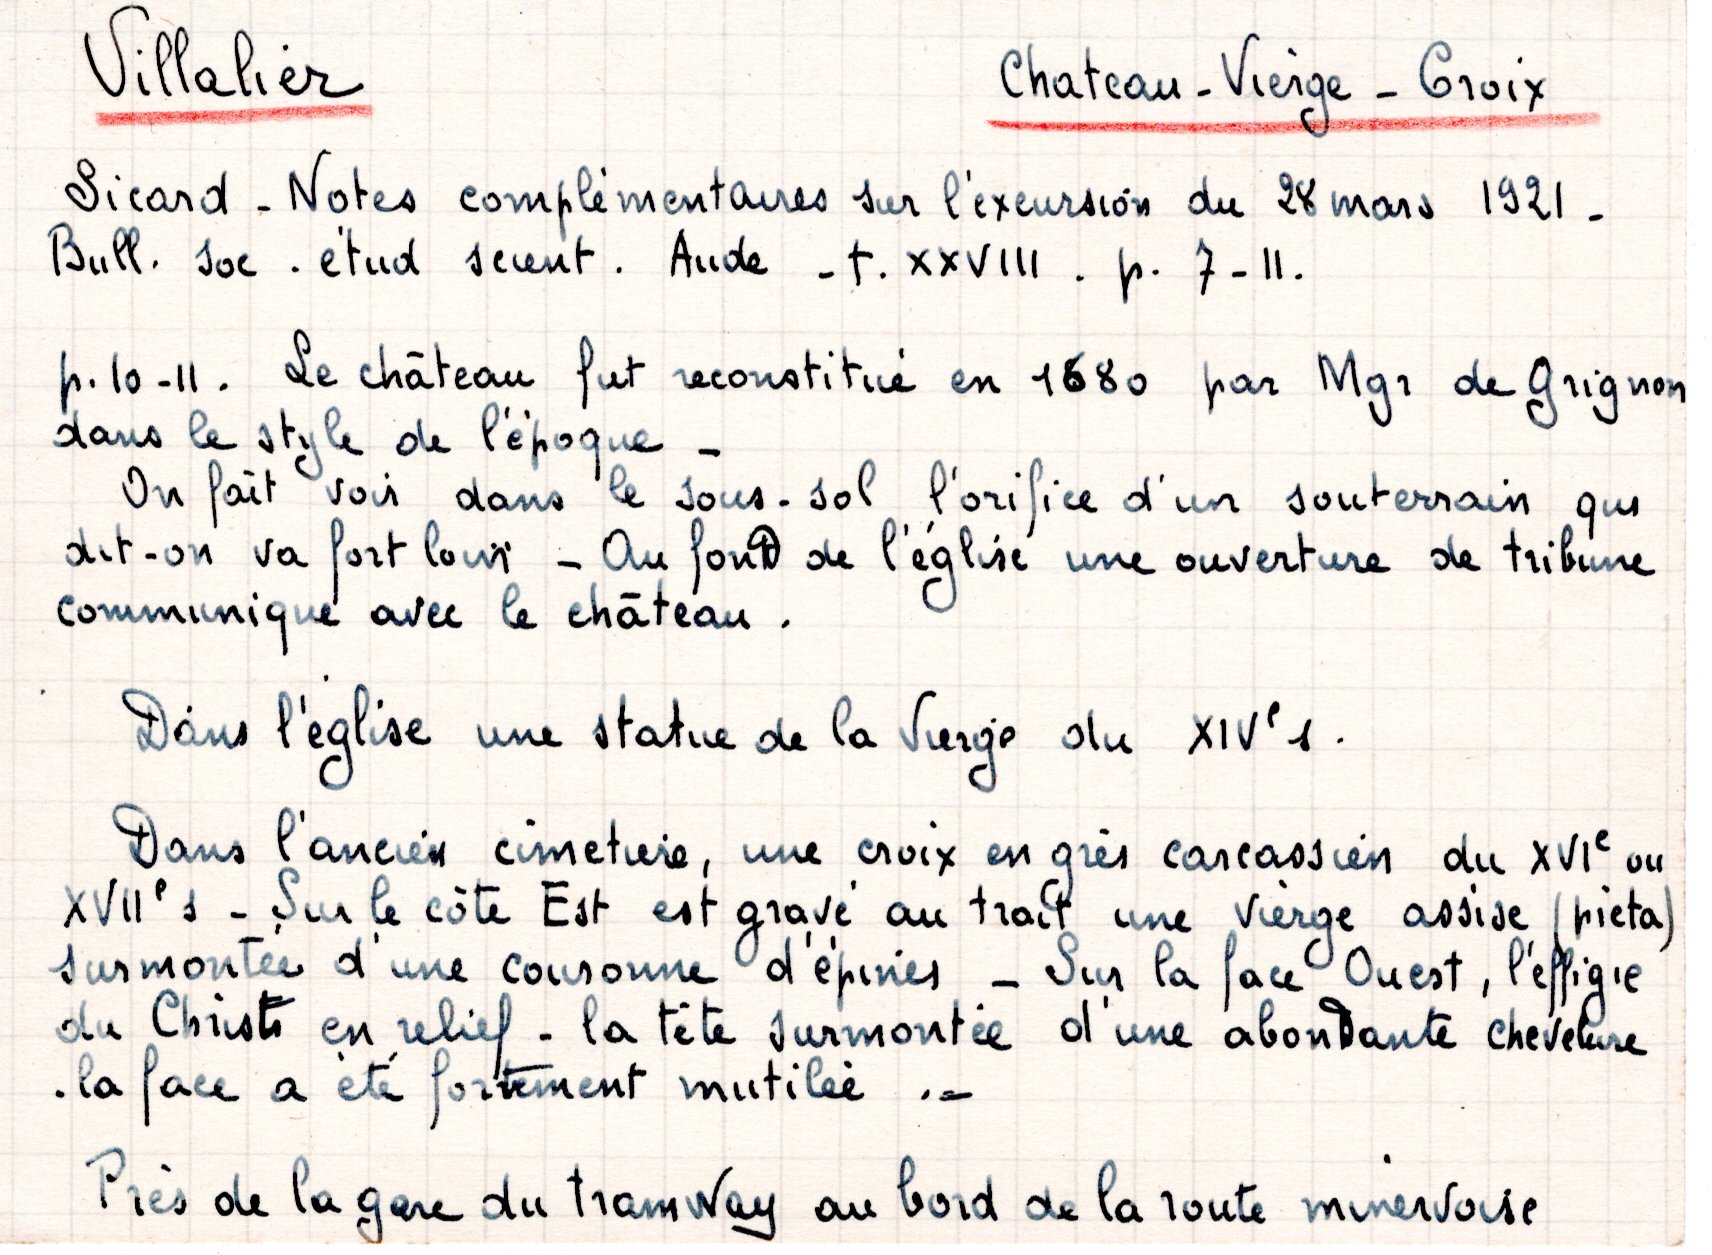 Villalier
Chateau - Vierge - Croix
Sicard - Notes complémentaires sur l'excursion du 28 mars 1921 -
Bull. soc. étud scient. Aude - t. XXVIII. p. 7-11.
p. 10-11. Le château fut reconstitué en 1680 par Mgr de Grignon
dans le style de l'époque -
On fait voir dans le sous-sol l'orifice d'un souterrain qui
dit-on va fort loin - Au fond de l'église une ouverture de tribune
communique avec le château.
Dans l'église une statue de la Vierge du XIVe s.
Dans l'ancien cimetière, une croix en grès carcassien du XVIe ou
XVIIe s - Sur le côté Est est gravé au trait une vierge assise (pieta)
surmontée d'une couronne d'épines - Sur la face Ouest, l'effigie
du Christ en relief - la tête surmontée d'une abondante chevelure
. la face a été fortement mutilée .-
Près de la gare du tramway au bord de la route minervoise